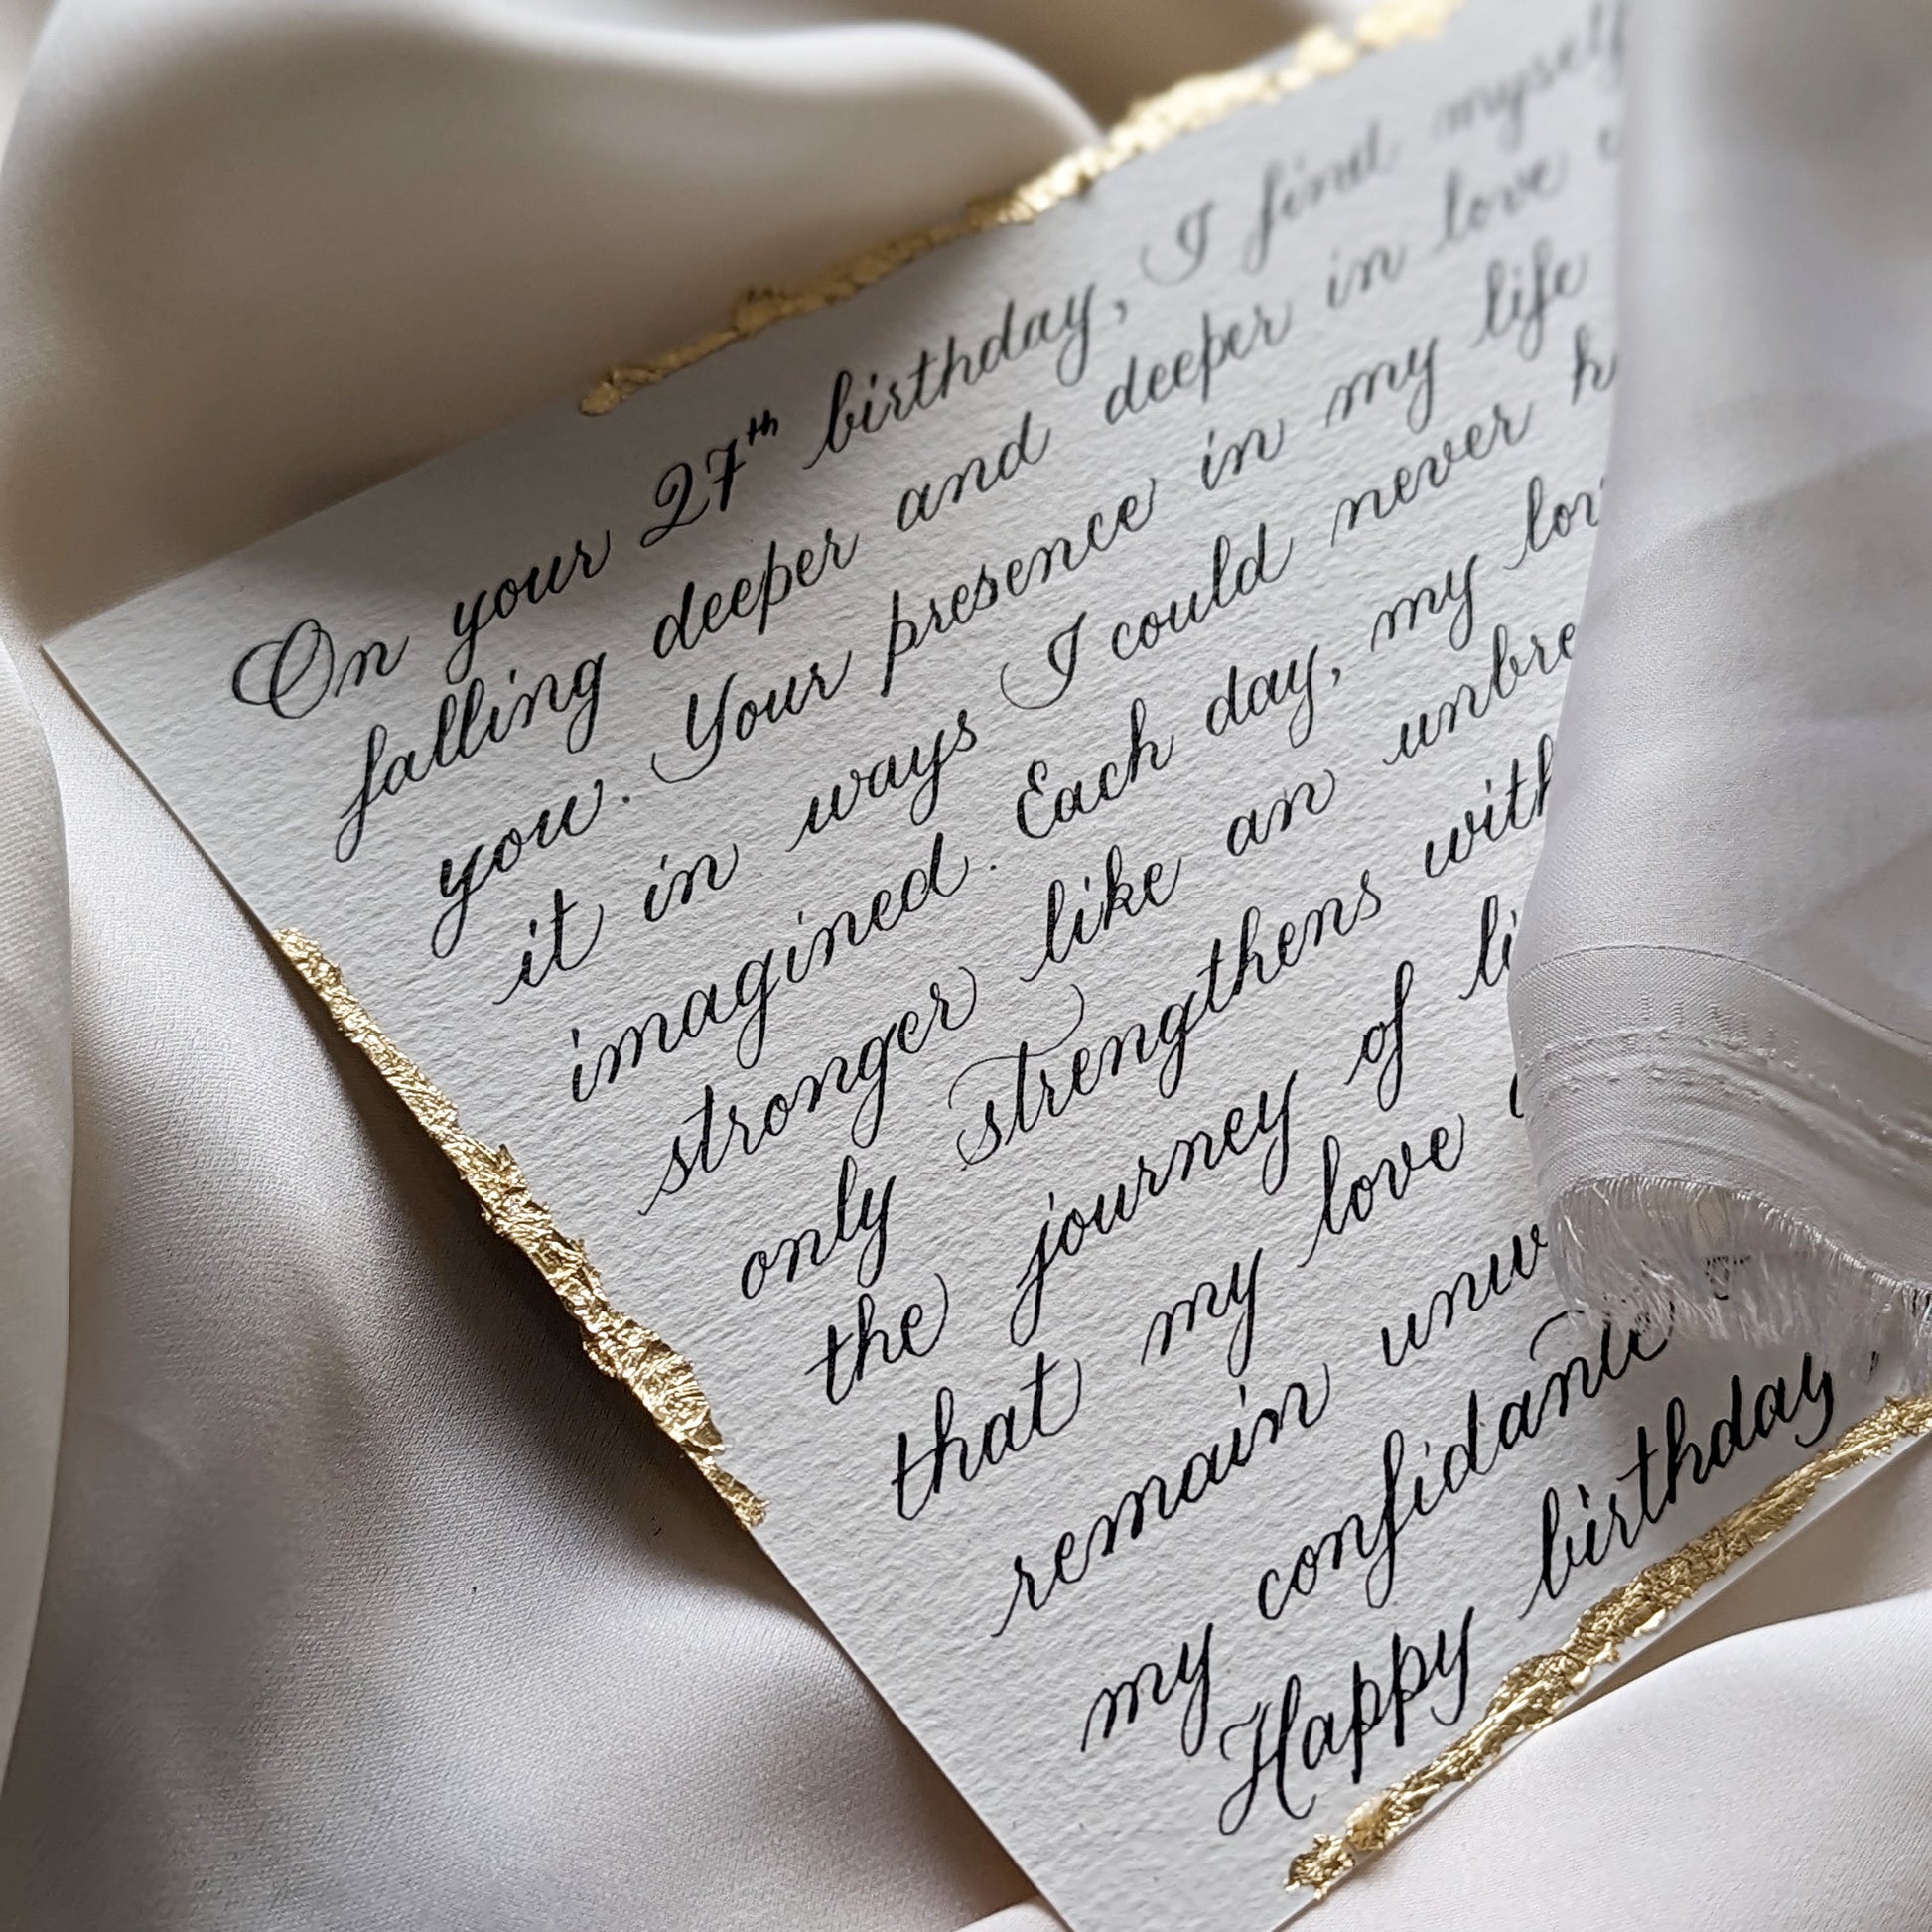 On your 27th birthday, I find myself
falling deeper and deeper in love
you. Your presence in my life
it in ways I could never h
imagined. Each day, my lov
stronger like an unbre
only strengthens with
the journey of li
that my love
remain unw
my confidante
Happy birthday